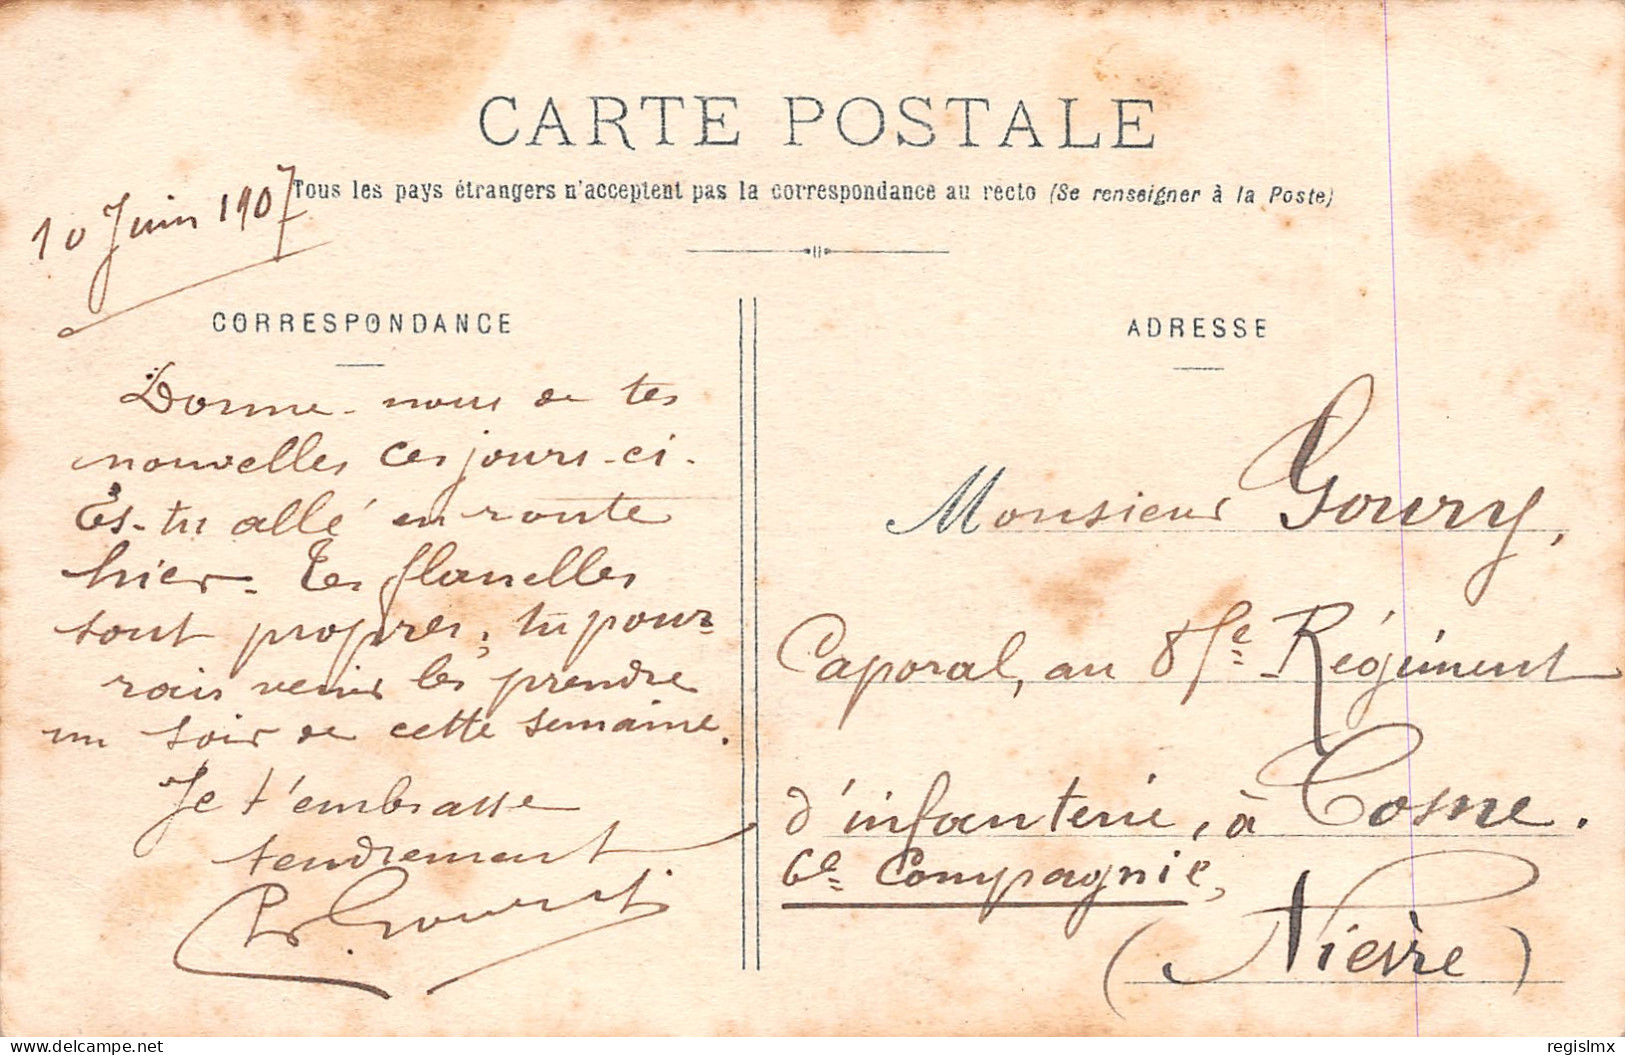 CARTE POSTALE
Tous les pays étrangers n'acceptent pas la correspondance au recto (Se renseigner à la Poste)
10 Juin 1907
CORRESPONDANCE
Donne-nous de tes
nouvelles ces jours-ci.
Es-tu allé en route
hier. Tes flanelles
sont propres, tu pour-
rais venir les prendre
un soir de cette semaine.
Je t'embrasse
tendrement
ADRESSE
Monsieur Goury,
Caporal, au 85e Régiment
d'infanterie, à Cosne.
6e Compagnie,
(Nièvre)
delcampe.net
regislmx